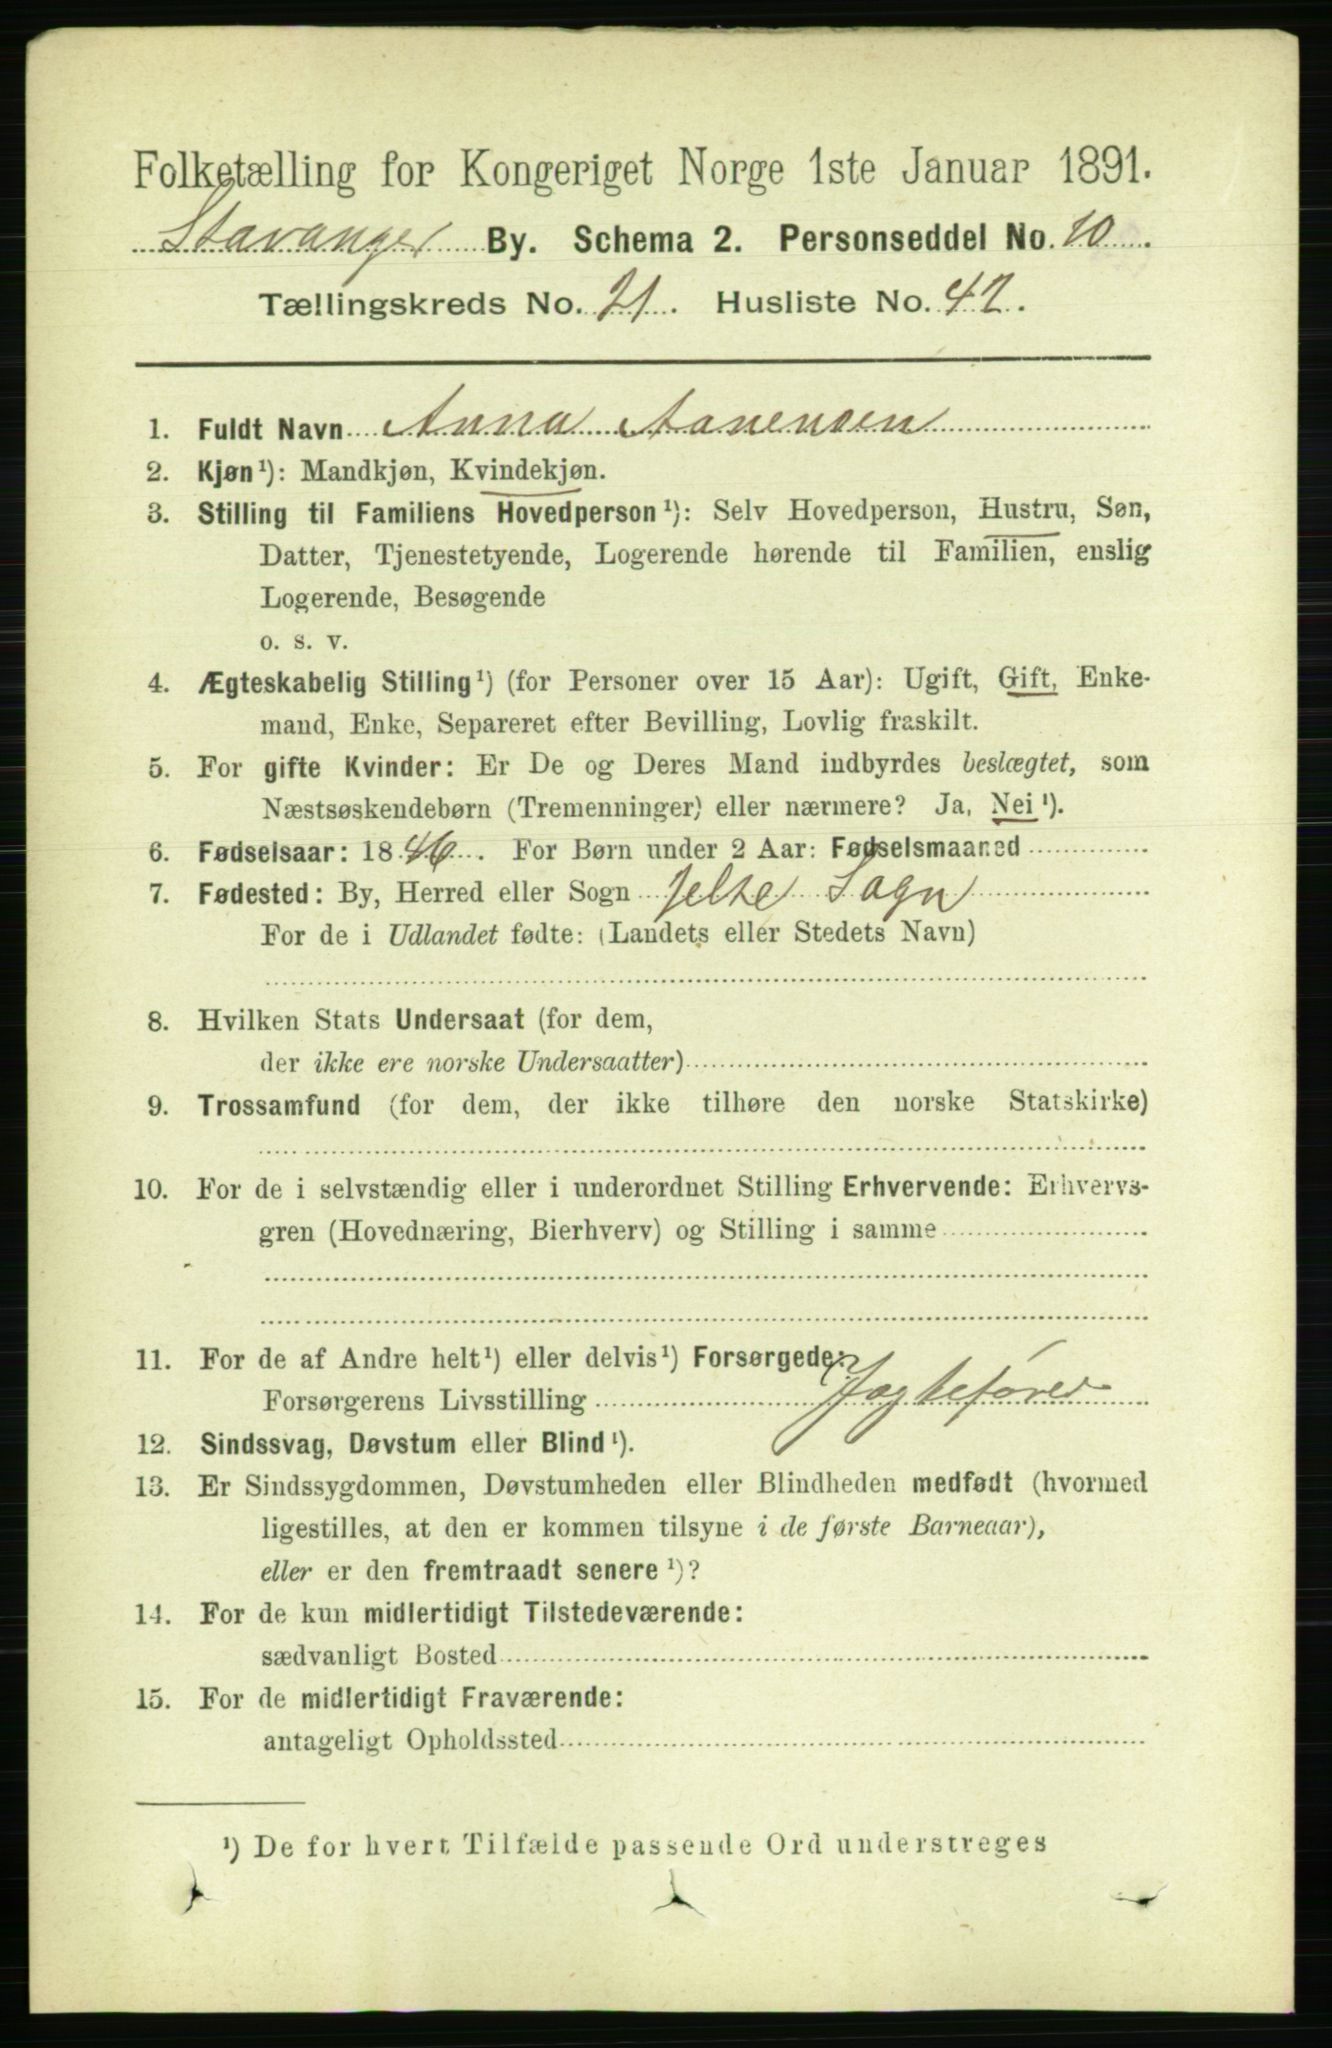 Folketælling for Kongeriget Norge 1ste Januar 1891.
Stavanger By. Schema 2. Personseddel No. 10.
Tællingskreds No. 21. Husliste No. 42.
1. Fuldt Navn Anna Aanensen
2. Kjøn¹): Mandkjøn, Kvindekjøn.
3. Stilling til Familiens Hovedperson¹): Selv Hovedperson, Hustru, Søn,
Datter, Tjenestetyende, Logerende hørende til Familien, enslig
Logerende, Besøgende
o. s. v.
4. Ægteskabelig Stilling¹) (for Personer over 15 Aar): Ugift, Gift, Enke-
mand, Enke, Separeret efter Bevilling, Lovlig fraskilt.
5. For gifte Kvinder: Er De og Deres Mand indbyrdes beslægtet, som
Næstsøskendebørn (Tremenninger) eller nærmere? Ja, Nei¹).
6. Fødselsaar: 1846. For Børn under 2 Aar: Fødselsmaaned
7. Fødested: By, Herred eller Sogn Jelse Sogn
For de i Udlandet fødte: (Landets eller Stedets Navn)
8. Hvilken Stats Undersaat (for dem,
der ikke ere norske Undersaatter)
9. Trossamfund (for dem, der ikke tilhøre den norske Statskirke)
10. For de i selvstændig eller i underordnet Stilling Erhvervende: Erhvervs-
gren (Hovednæring, Bierhverv) og Stilling i samme
11. For de af Andre helt¹) eller delvis¹) Forsørgede:
Forsørgerens Livsstilling Jagtefører
12. Sindssvag, Døvstum eller Blind¹).
13. Er Sindssygdommen, Døvstumheden eller Blindheden medfødt (hvormed
ligestilles, at den er kommen tilsyne i de første Barneaar),
eller er den fremtraadt senere¹)?
14. For de kun midlertidigt Tilstedeværende:
sædvanligt Bosted
15. For de midlertidigt Fraværende:
antageligt Opholdssted
¹) De for hvert Tilfælde passende Ord understreges